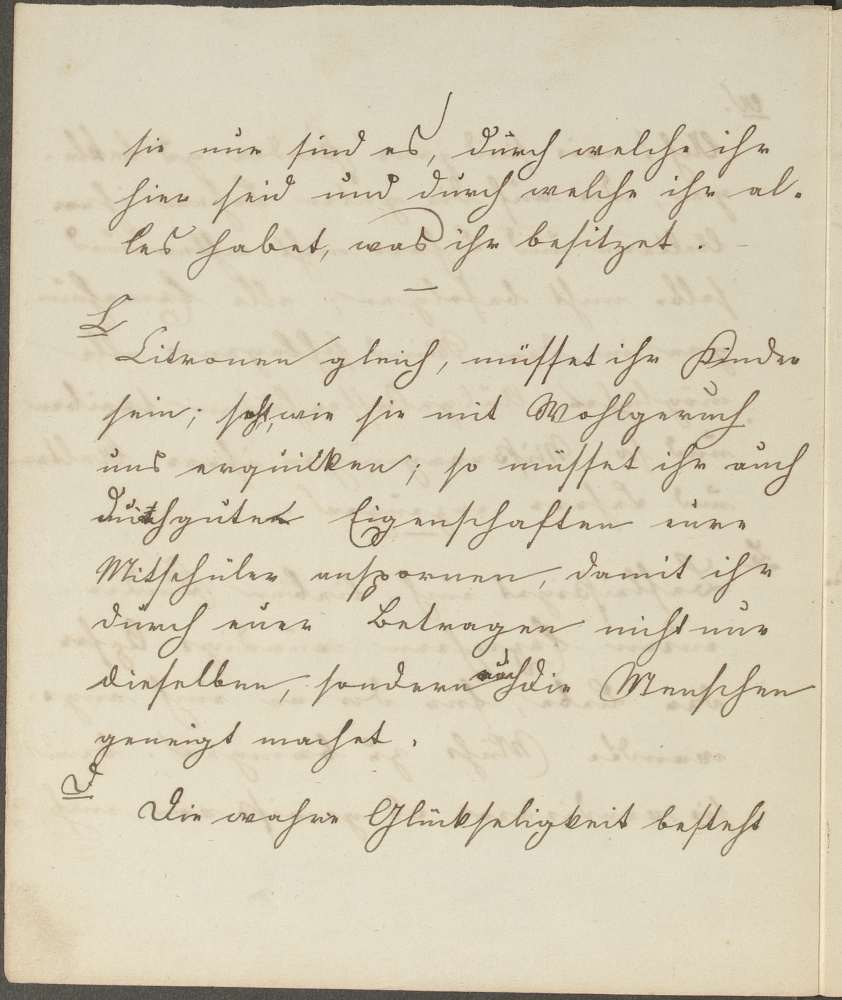 sie nur sind es, durch welche ihr
hier seid und durch welche ihr al-
les habet, was ihr besitzet.
C
Citronen gleich, müsset ihr Kinder
sein; seht, wie sie mit Wohlgeruch
uns erquikken; so müsset ihr auch
durch gute Eigenschaften eure
Mitschüler anspornen, damit ihr
durch euer Betragen nicht nur
dieselben, sondern auch die Menschen
geneigt machet.
D
Die wahre Glückseligkeit besteht